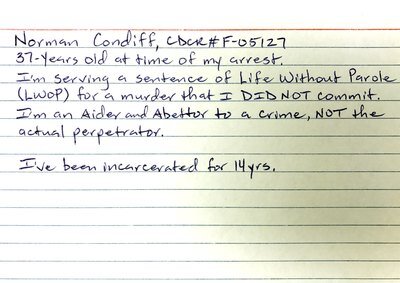 Norman Condiff, CDCR#F-05127
37-years old at time of my arrest.
I'm serving a sentence of Life Without Parole
(LWOP) for a murder that I DID NOT commit.
I'm an Aider and Abettor to a crime, NOT the
actual perpetrator.
I've been incarcerated for 14yrs.